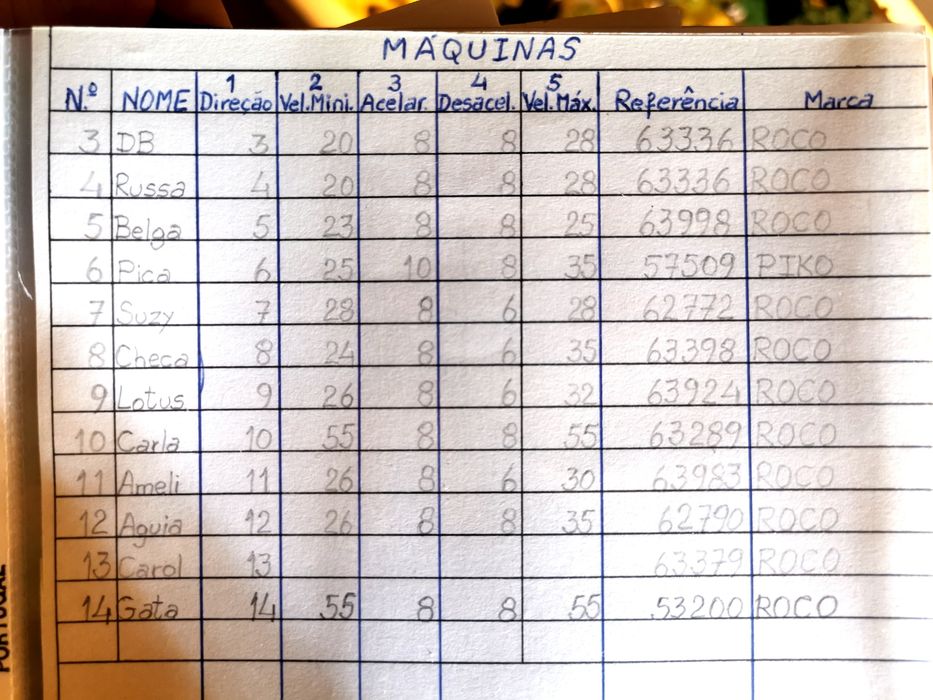 MÁQUINAS
N.º NOME 1 Direção 2 Vel.Mini. 3 Acelar. 4 Desacel. 5 Vel.Máx. Referência Marca
3 DB 3 20 8 8 28 63336 ROCO
4 Russa 4 20 8 8 28 63336 ROCO
5 Belga 5 23 8 8 25 63998 ROCO
6 Pica 6 25 10 8 35 57509 PIKO
7 Suzy 7 28 8 6 28 62772 ROCO
8 Checa 8 24 8 6 35 63398 ROCO
9 Lotus 9 26 8 6 32 63924 ROCO
10 Carla 10 55 8 8 55 63289 ROCO
11 Ameli 11 26 8 6 30 63983 ROCO
12 Aguia 12 26 8 8 35 62790 ROCO
13 Carol 13 63379 ROCO
14 Gata 14 55 8 8 55 53200 ROCO
PORTUGAL